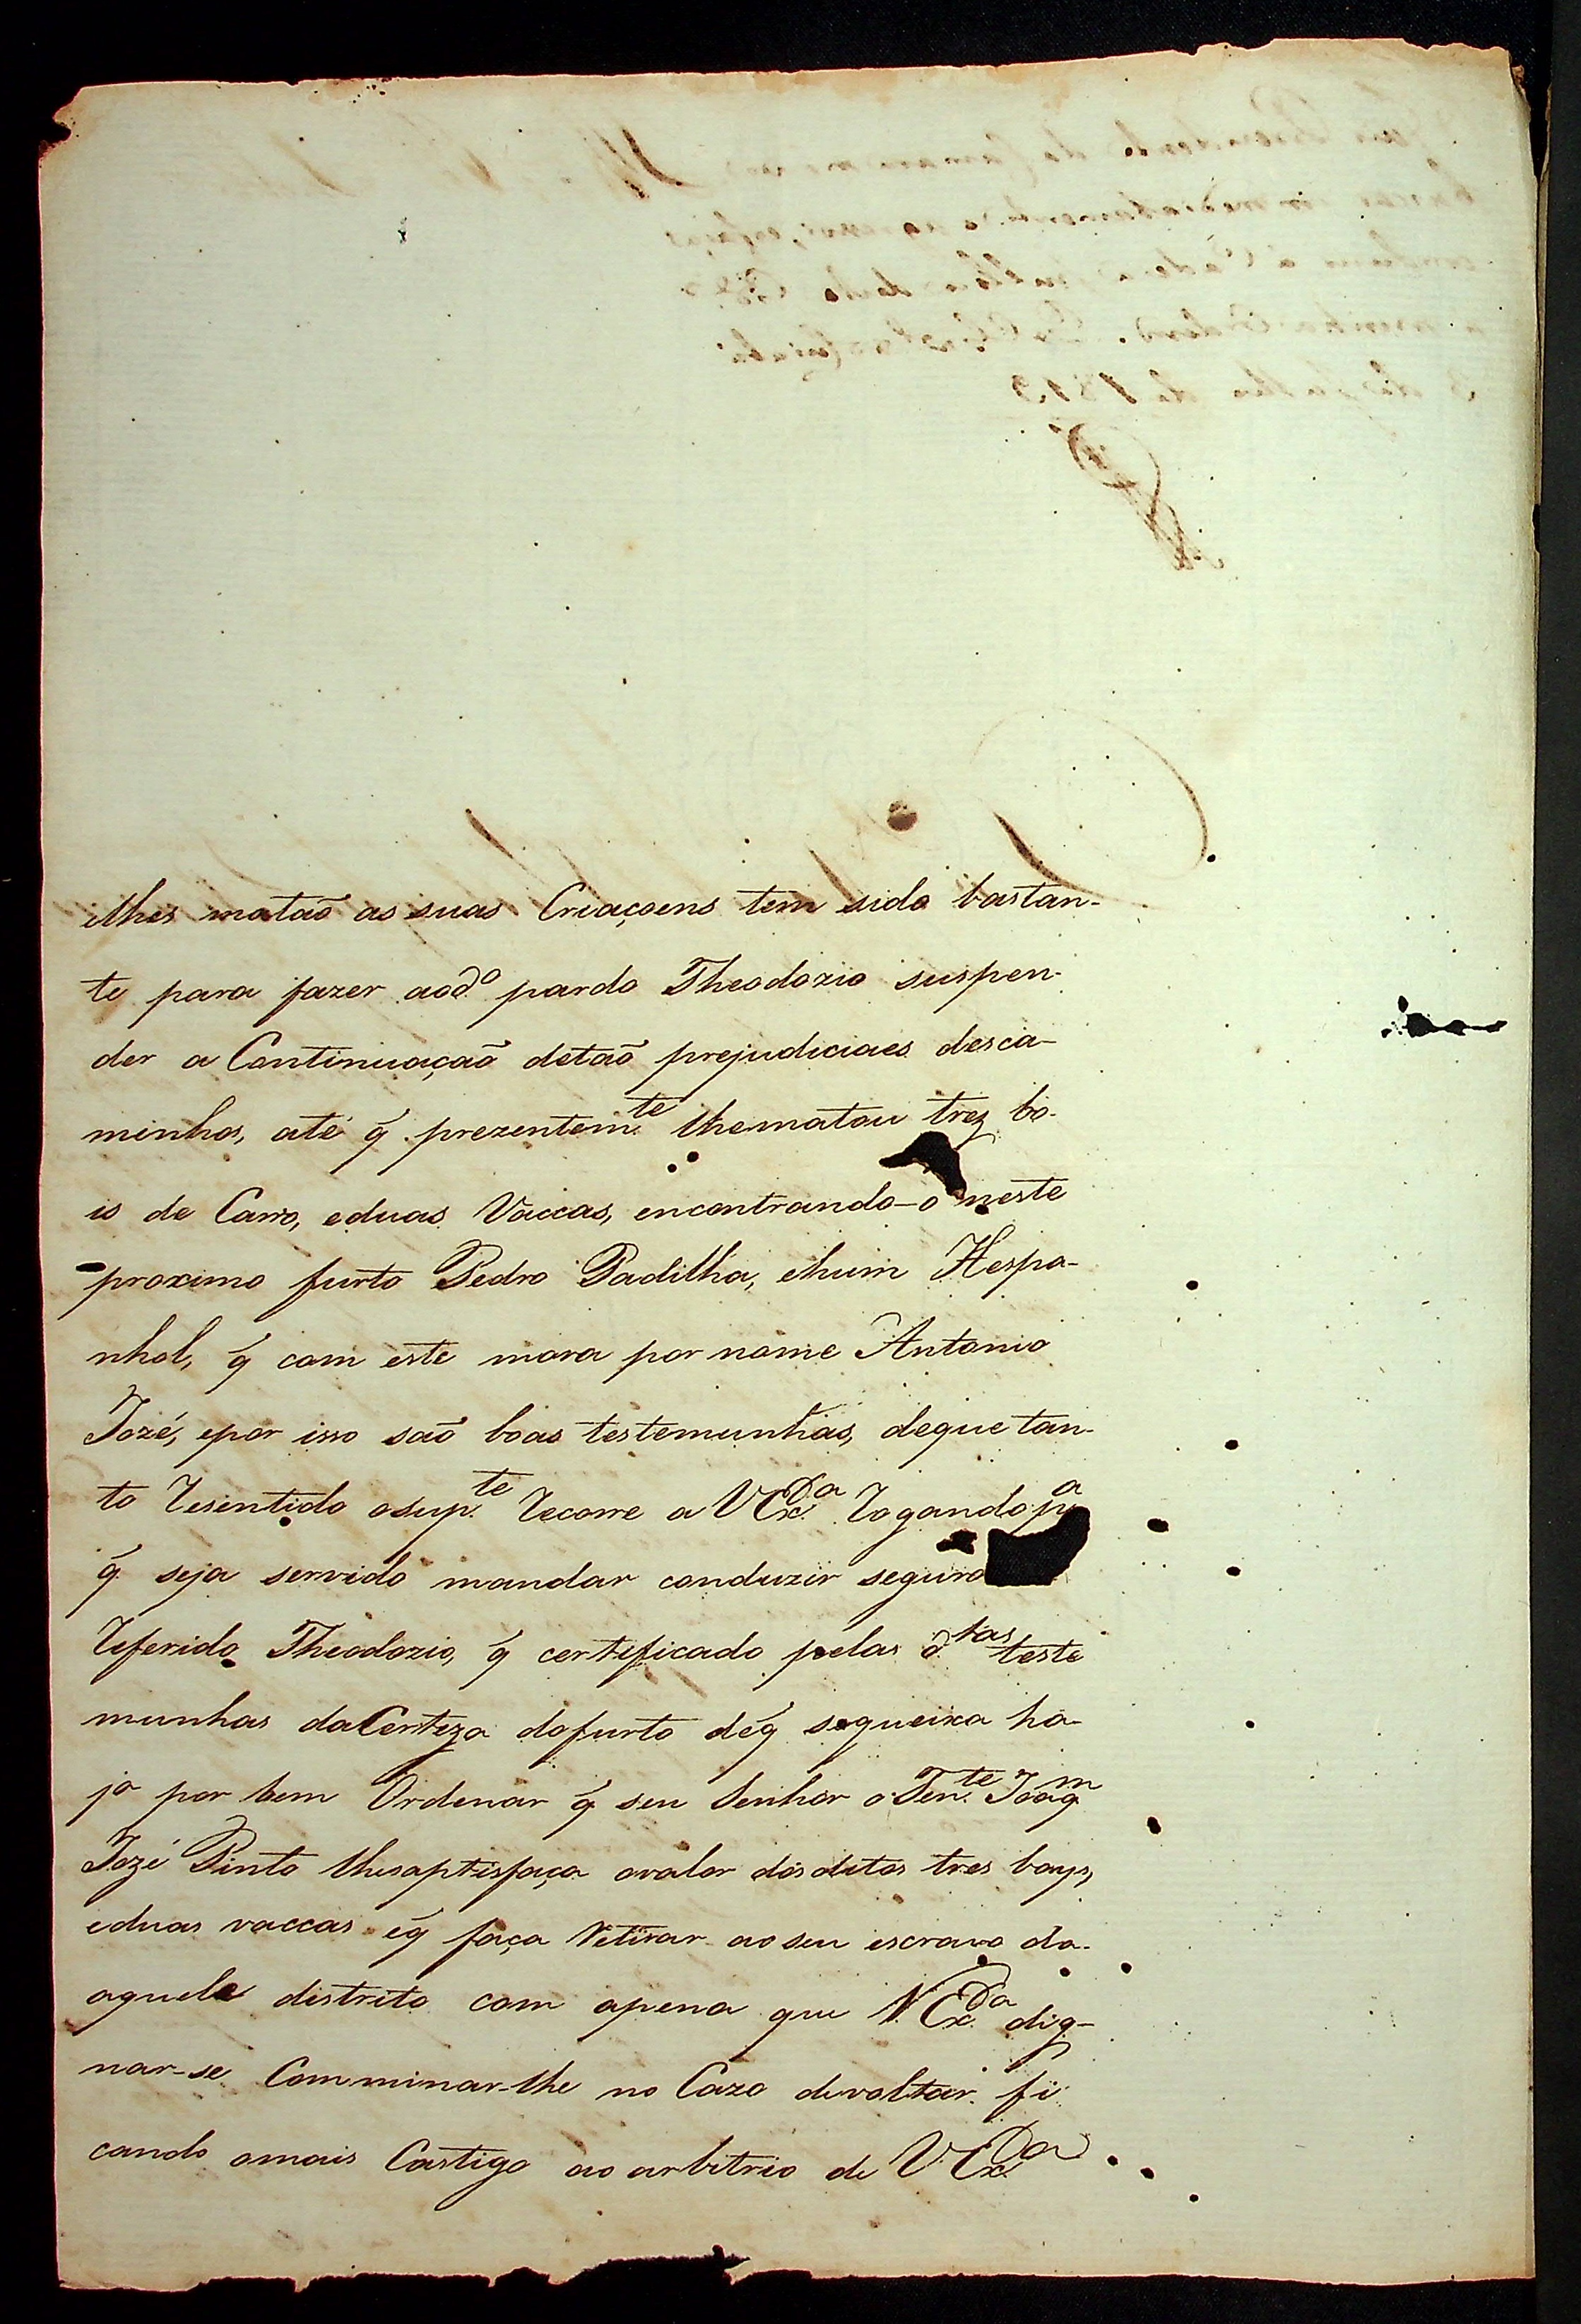 elhes matão as suas Criaçoens tem sido bastan-
te para fazer aod.º pardo Theodozio suspen-
der a Continuação detão prejudiciaes desca-
minhos, até q̃ prezentem.te lhematou trez bo-
is de Carro, eduas Vaccas, encontrando-o neste
proximo furto Pedro Padilha, ehum Hespa-
nhol, q̃ com este mora por nome Antonio
Jozé, epor isso são boas testemunhas, deque tan-
to Resentido osup.te Recorre a V Ex.a Rogando p.a
q̃ seja servido mandar conduzir seguro
Referido Theodozio, q̃ certificado pelas d.tas teste
munhas daCerteza dofurto déq̃ sequeixa ha-
ja por bem Ordenar q̃ seu Senhor o Ten.te Joaq.m
Jozé Pinto lhesaptisfaça ovalor dos ditos tres boys,
eduas vaccas eq̃ faça Retirar ao seu escravo da-
aquele distrito com apena que V. Ex.a dig-
nar-se Comminar-lhe no Cazo devoltar fi
cando omais Castigo ao arbitrio de V. Ex.a